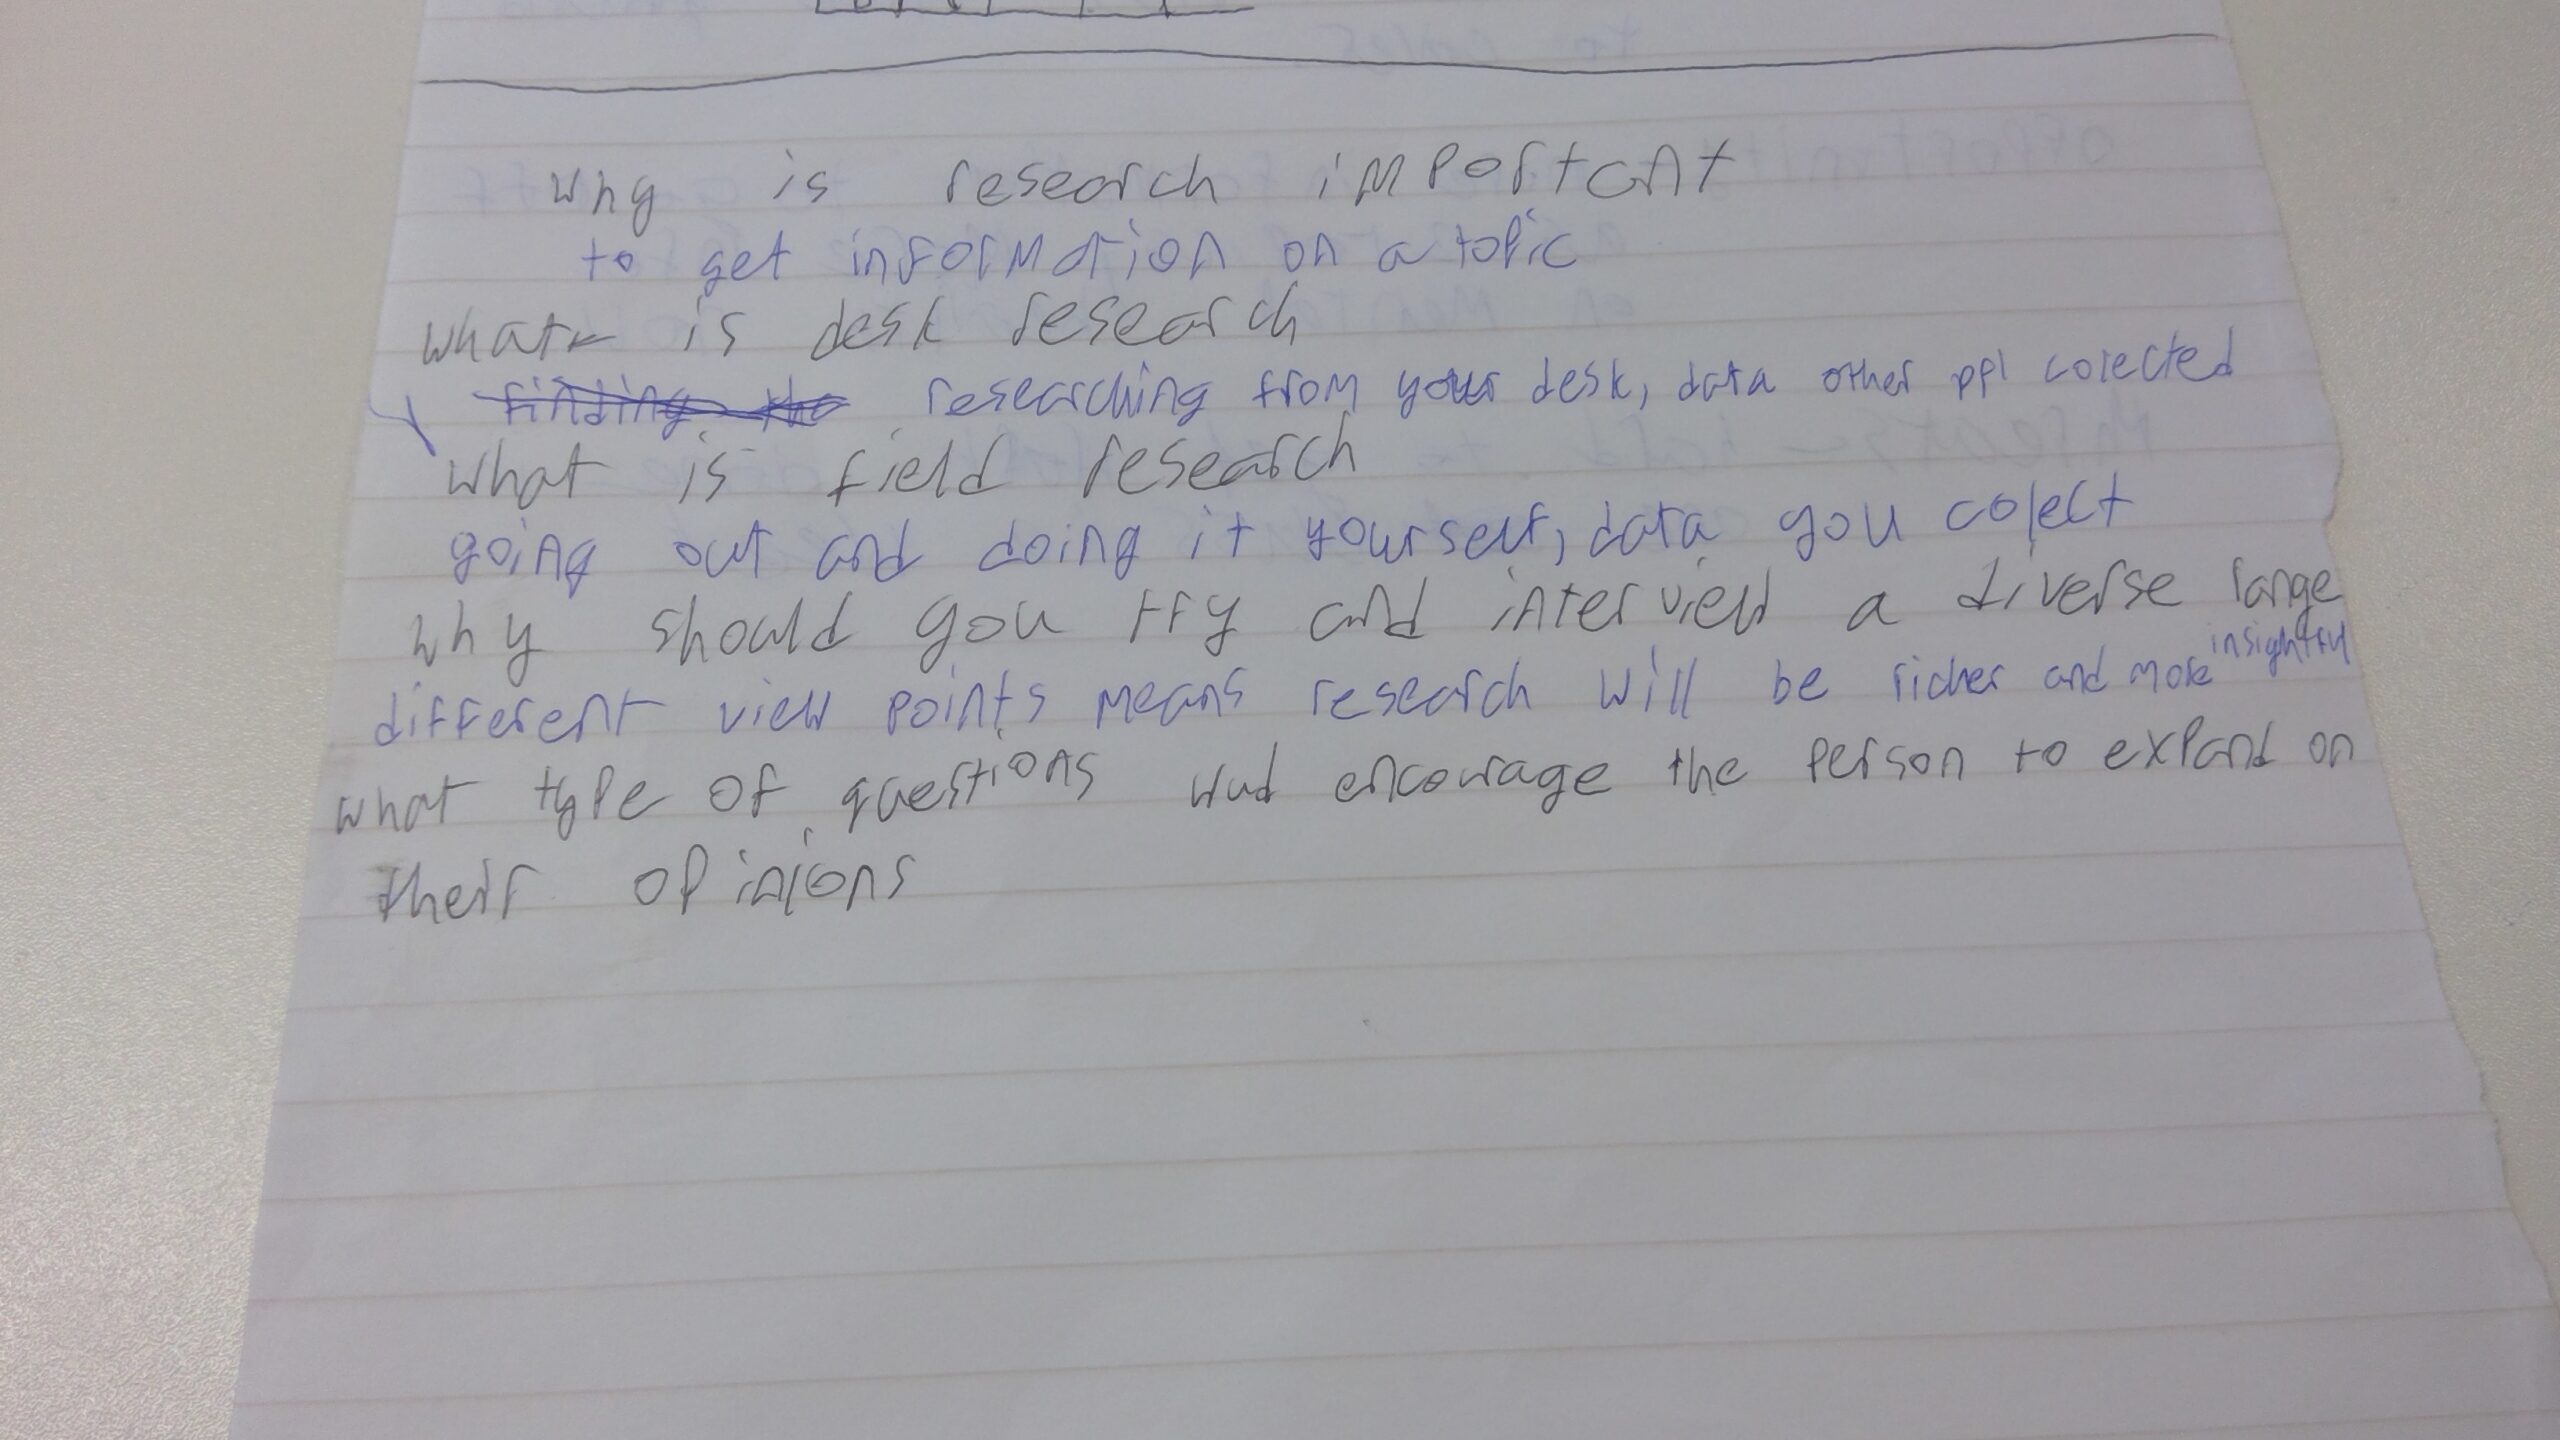 why is research important
to get information on a topic
what is desk research
finding the researching from your desk, data other ppl colected
what is field research
going out and doing it yourself, data you colect
why should you try and interview a diverse range
different view points means research will be richer and more insightful
what type of questions wud encourage the person to expand on
their opinions